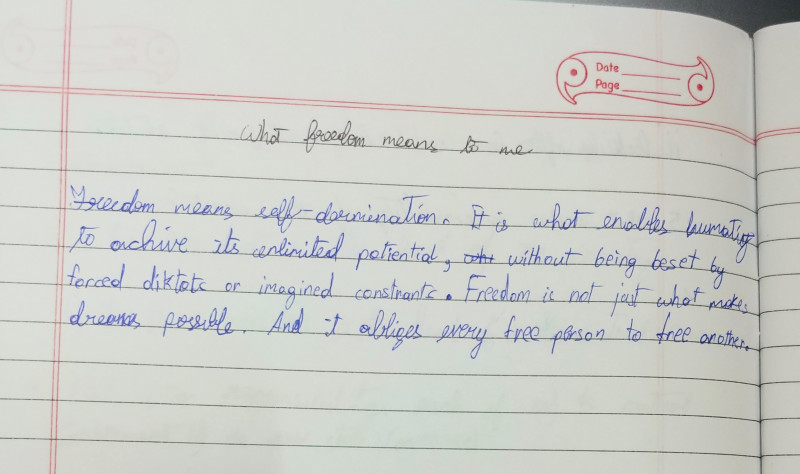 Date
Page
What freedom means to me
Freedom means self-darmination. It is what enables humatity
to archive its unlimited potiential, without being beset by
forced diktats or imagined constrants. Freedom is not just what makes
dreams possible. And it obliges every free person to free another.